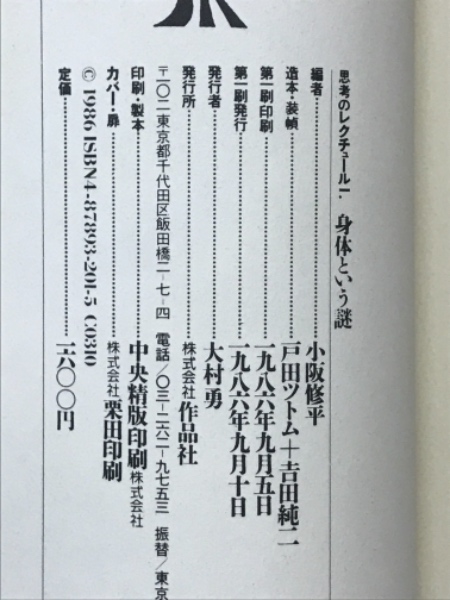 思考のレクチュール1・身体という謎
編者……小阪修平
造本・装幀……戸田ツトム+吉田純二
第一刷印刷……一九八六年九月五日
第一刷発行……一九八六年九月十日
発行者……大村勇
発行所……株式会社作品社
〒一〇二 東京都千代田区飯田橋二-七-四 電話/〇三-二六二-九七五三 振替/東京
印刷・製本……中央精版印刷株式会社
カバー・扉……株式会社栗田印刷
© 1986 ISBN4-87893-201-5 C0310
定価……一六〇〇円